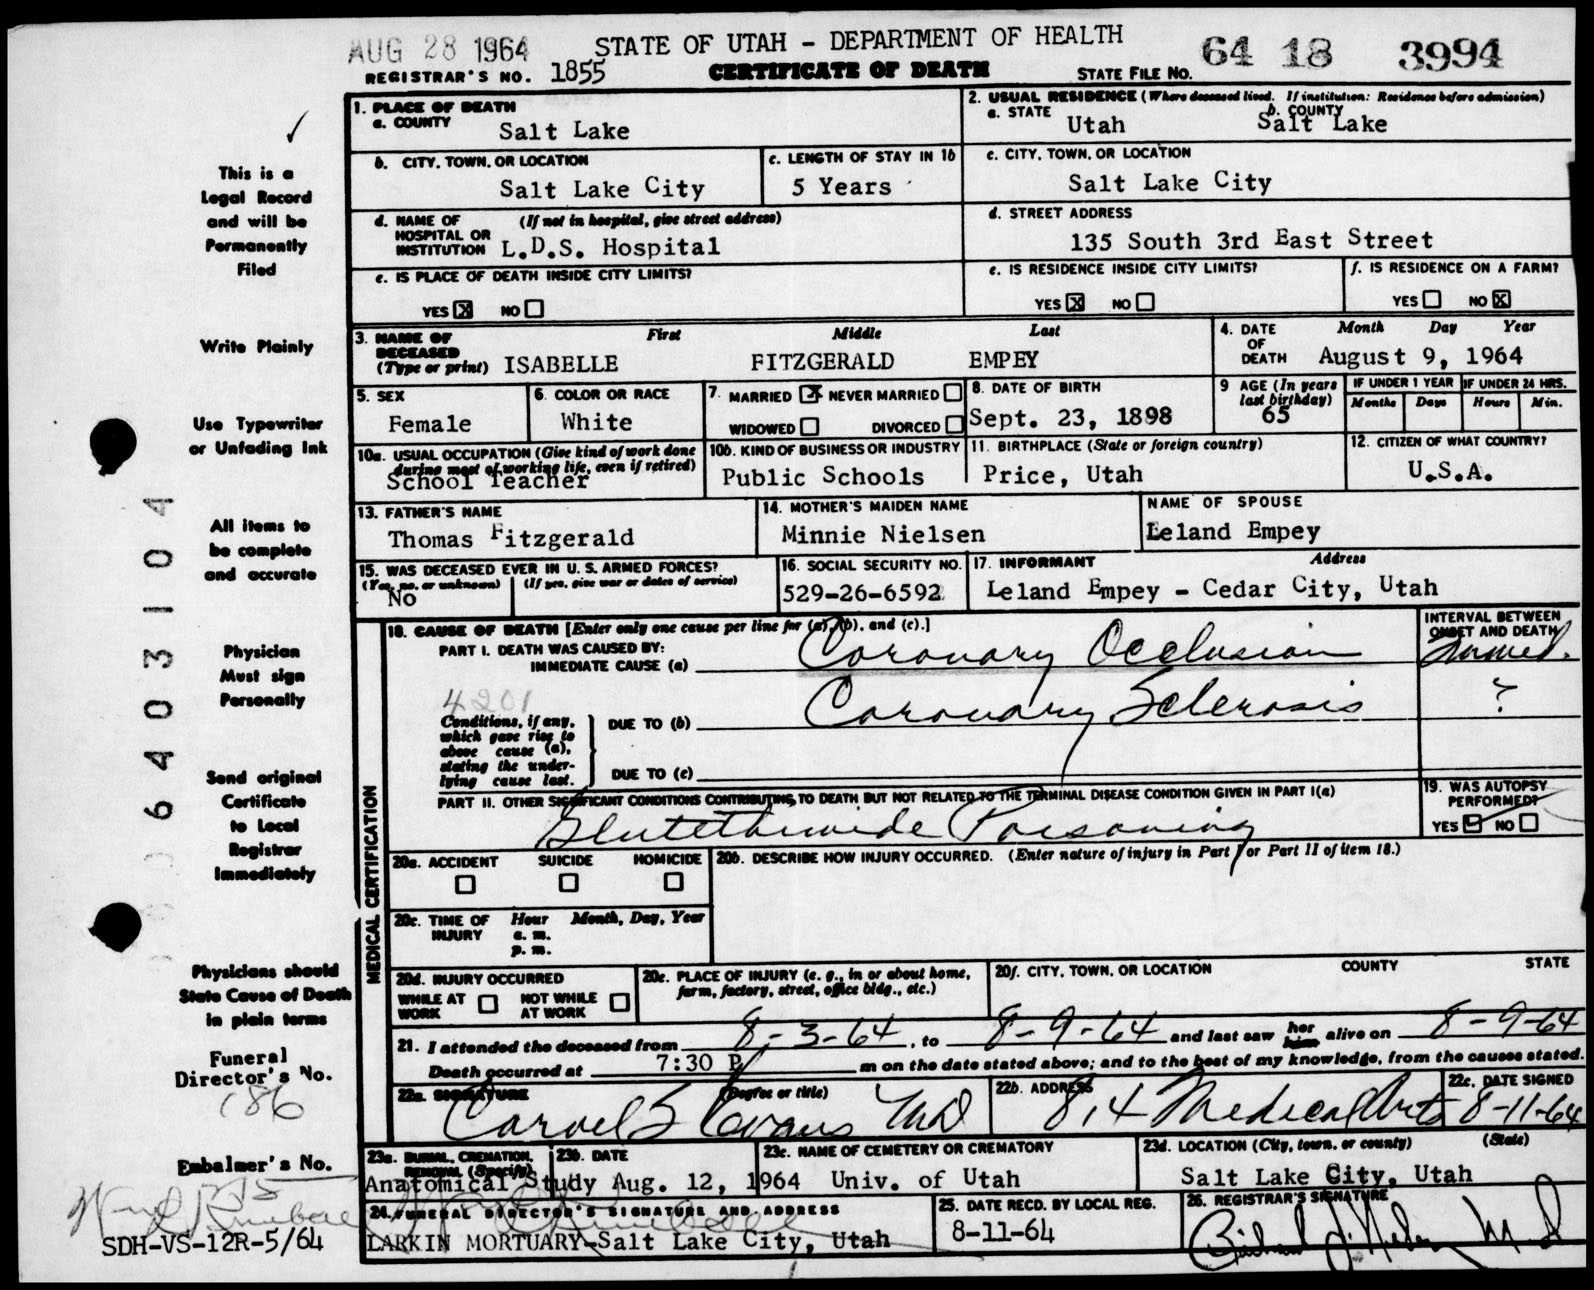 AUG 28 1964
STATE OF UTAH - DEPARTMENT OF HEALTH
64 18 3994
REGISTRAR'S NO. 1855
CERTIFICATE OF DEATH
STATE FILE NO.
1. PLACE OF DEATH
a. COUNTY
Salt Lake
2. USUAL RESIDENCE (Where deceased lived. If institution: Residence before admission)
a. STATE
Utah
b. COUNTY
Salt Lake
b. CITY, TOWN, OR LOCATION
Salt Lake City
c. LENGTH OF STAY IN 1b
5 Years
c. CITY, TOWN, OR LOCATION
Salt Lake City
d. NAME OF HOSPITAL OR INSTITUTION
(If not in hospital, give street address)
L.D.S. Hospital
d. STREET ADDRESS
135 South 3rd East Street
e. IS PLACE OF DEATH INSIDE CITY LIMITS?
YES X NO
e. IS RESIDENCE INSIDE CITY LIMITS?
YES X NO
f. IS RESIDENCE ON A FARM?
YES NO X
3. NAME OF DECEASED
(Type or print)
First Middle Last
ISABELLE FITZGERALD EMPEY
4. DATE OF DEATH
Month Day Year
August 9, 1964
5. SEX
Female
6. COLOR OR RACE
White
7. MARRIED X NEVER MARRIED
WIDOWED DIVORCED
8. DATE OF BIRTH
Sept. 23, 1898
9 AGE (In years last birthday)
65
IF UNDER 1 YEAR
Months Days
IF UNDER 24 HRS.
Hours Min.
10a. USUAL OCCUPATION (Give kind of work done during most of working life, even if retired)
School Teacher
10b. KIND OF BUSINESS OR INDUSTRY
Public Schools
11. BIRTHPLACE (State or foreign country)
Price, Utah
12. CITIZEN OF WHAT COUNTRY?
U.S.A.
13. FATHER'S NAME
Thomas Fitzgerald
14. MOTHER'S MAIDEN NAME
Minnie Nielsen
NAME OF SPOUSE
Leland Empey
15. WAS DECEASED EVER IN U. S. ARMED FORCES?
(Yes, no, or unknown) (If yes, give war or dates of service)
No
16. SOCIAL SECURITY NO.
529-26-6592
17. INFORMANT Address
Leland Empey - Cedar City, Utah
MEDICAL CERTIFICATION
18. CAUSE OF DEATH [Enter only one cause per line for (a), (b), and (c).]
PART I. DEATH WAS CAUSED BY:
IMMEDIATE CAUSE (a) Coronary Occlusion
INTERVAL BETWEEN ONSET AND DEATH
4201
Conditions, if any, which gave rise to above cause (a), stating the underlying cause last.
DUE TO (b) Coronary Sclerosis
?
DUE TO (c)
PART II. OTHER SIGNIFICANT CONDITIONS CONTRIBUTING TO DEATH BUT NOT RELATED TO THE TERMINAL DISEASE CONDITION GIVEN IN PART I(a)
Glutethimide Poisoning
19. WAS AUTOPSY PERFORMED?
YES NO
20a. ACCIDENT SUICIDE HOMICIDE
20b. DESCRIBE HOW INJURY OCCURRED. (Enter nature of injury in Part I or Part II of item 18.)
20c. TIME OF INJURY
Hour Month, Day, Year
a. m.
p. m.
20d. INJURY OCCURRED
WHILE AT WORK NOT WHILE AT WORK
20e. PLACE OF INJURY (e. g., in or about home, farm, factory, street, office bldg., etc.)
20f. CITY, TOWN, OR LOCATION COUNTY STATE
21. I attended the deceased from 8-3-64, to 8-9-64 and last saw her him alive on 8-9-64
Death occurred at 7:30 P m on the date stated above; and to the best of my knowledge, from the causes stated.
22a. SIGNATURE (Degree or title)
Carvel S Evans MD
22b. ADDRESS
814 Medical Arts
22c. DATE SIGNED
8-11-64
23a. BURIAL, CREMATION, REMOVAL (Specify)
Anatomical Study
23b. DATE
Aug. 12, 1964
23c. NAME OF CEMETERY OR CREMATORY
Univ. of Utah
23d. LOCATION (City, town, or county) (State)
Salt Lake City, Utah
24. FUNERAL DIRECTOR'S SIGNATURE AND ADDRESS
LARKIN MORTUARY-Salt Lake City, Utah
25. DATE RECD. BY LOCAL REG.
8-11-64
26. REGISTRAR'S SIGNATURE
This is a
Legal Record
and will be
Permanently
Filed
Write Plainly
Use Typewriter
or Unfading Ink
All items to
be complete
and accurate
Physician
Must sign
Personally
Send original
Certificate
to Local
Registrar
Immediately
Physicians should
State Cause of Death
in plain terms
Funeral
Director's No.
186
Embalmer's No.
SDH-VS-12R-5/64
6403104